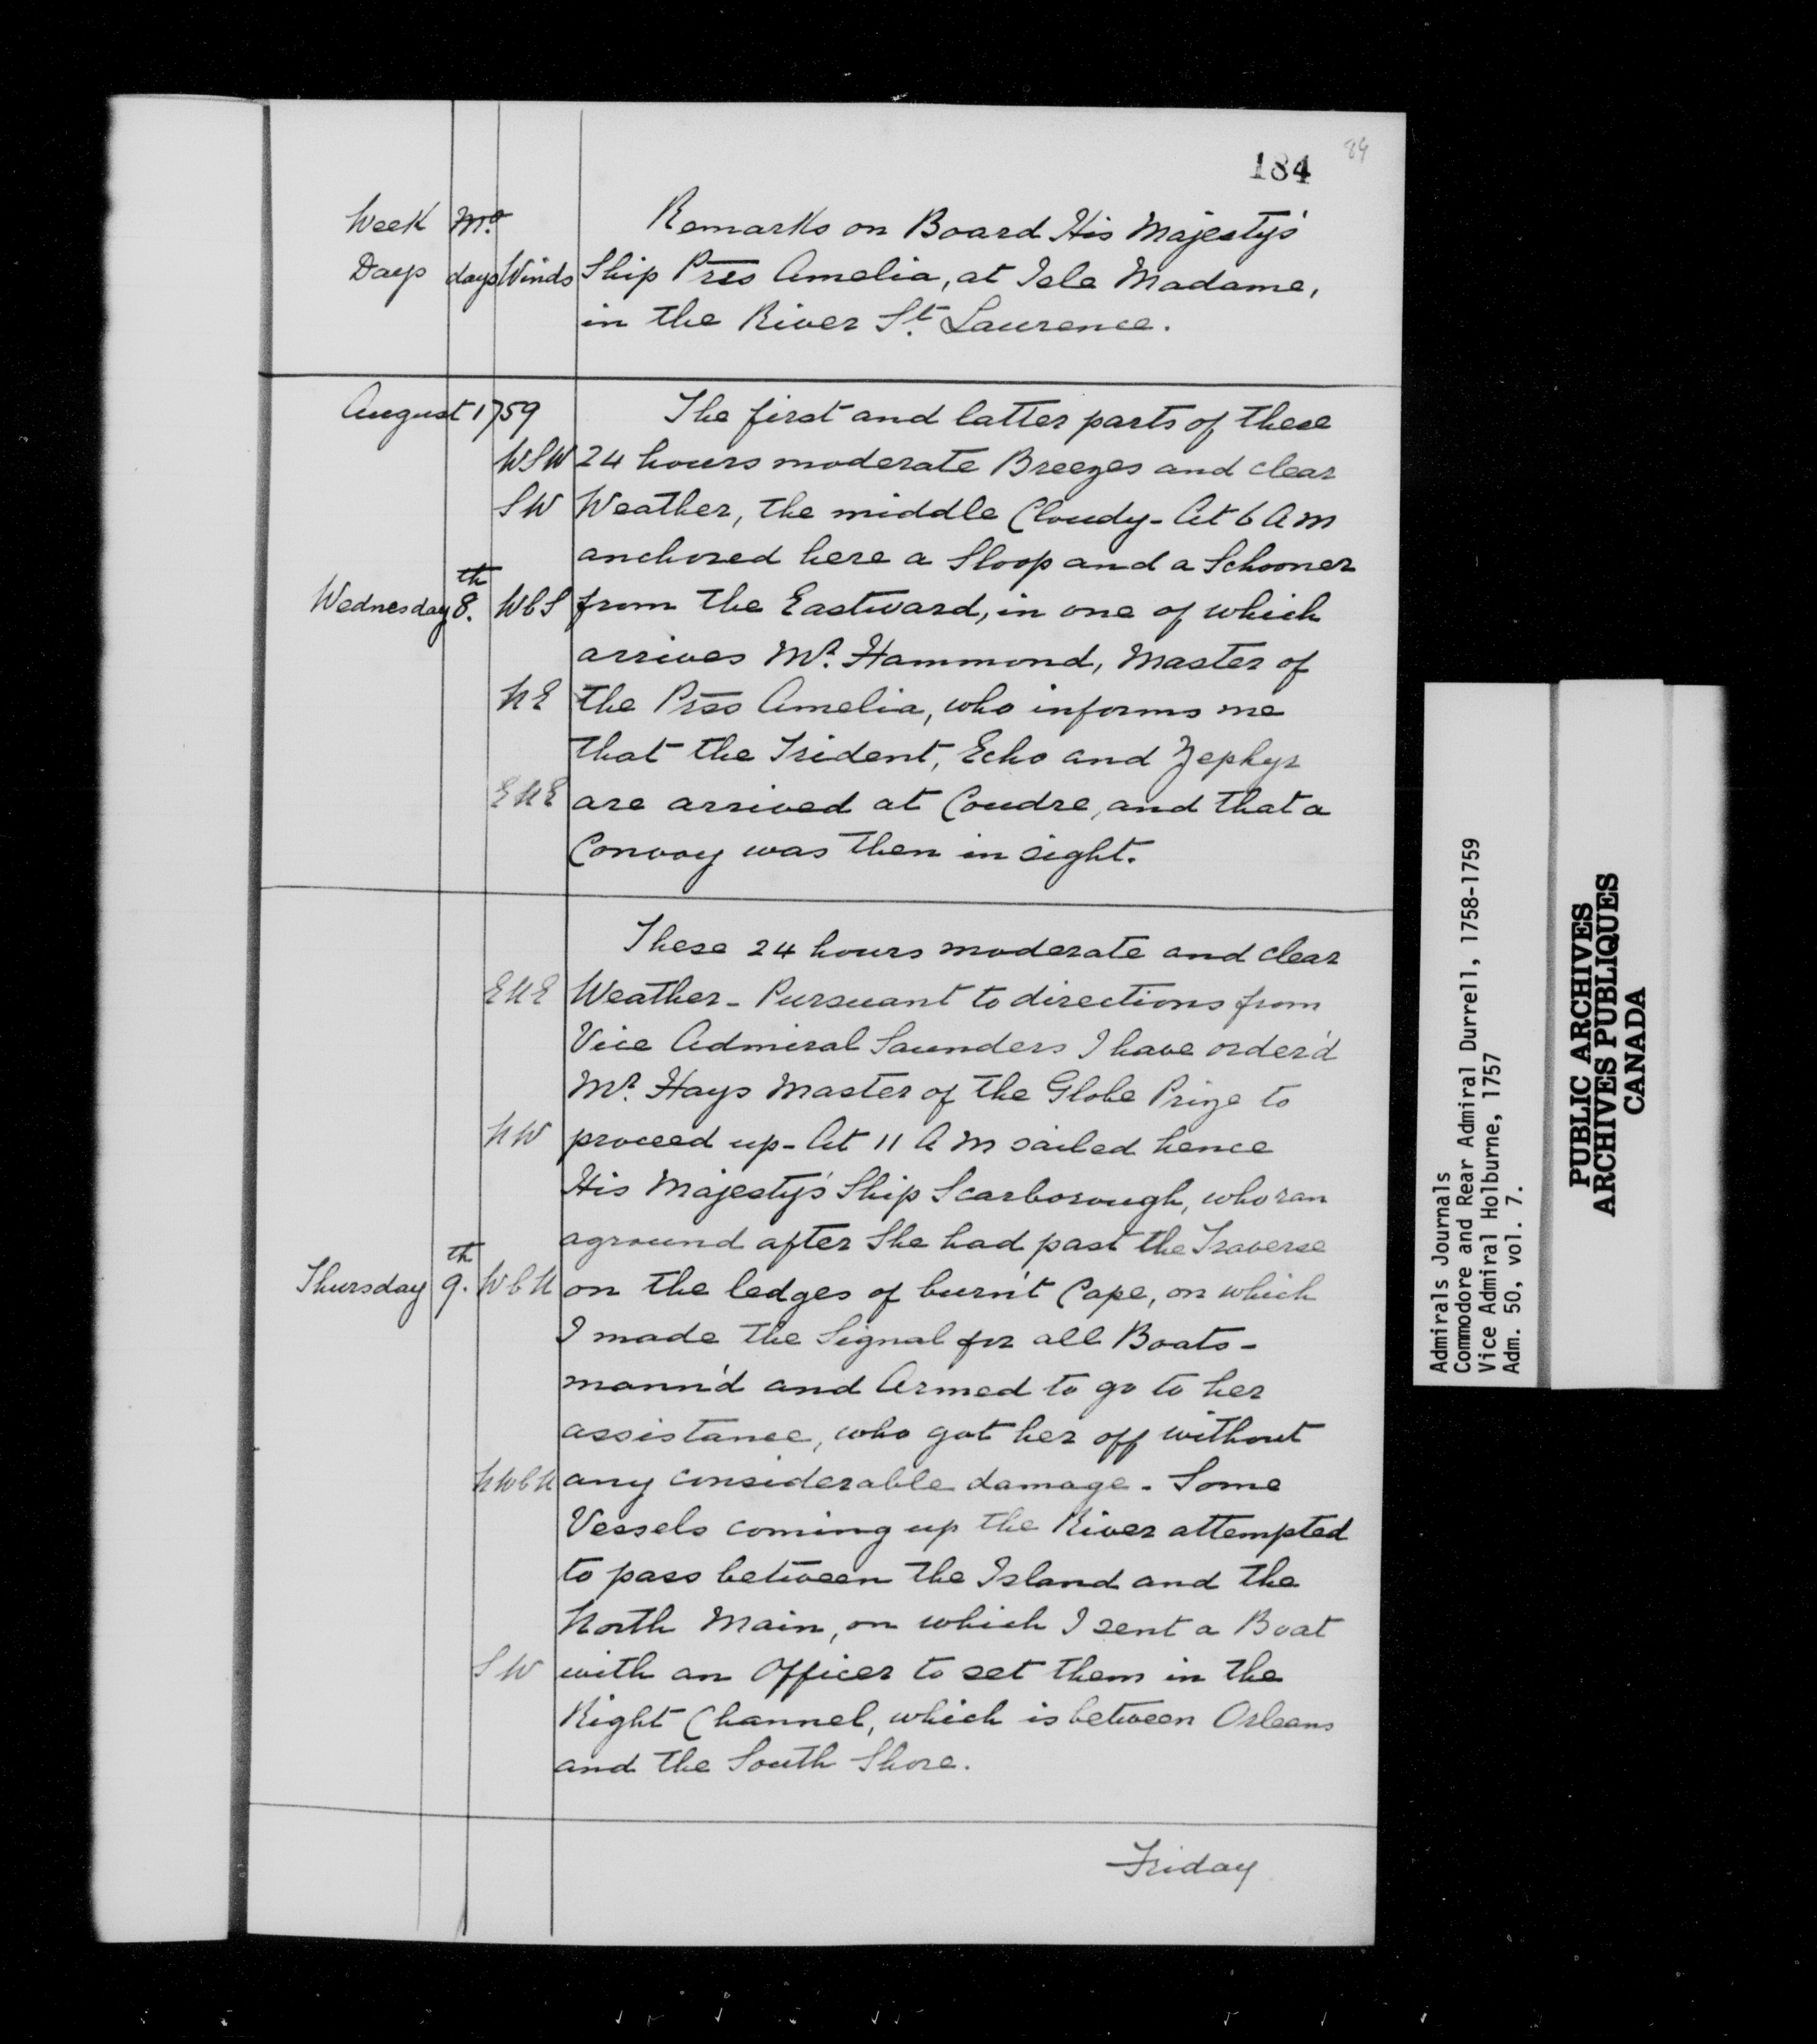 184
84
Week Mo. Remarks on Board His Majesty's
Days days Winds Ship Prss Amelia, at Isle Madame,
in the River St. Laurence.
August 1759 The first and latter parts of these
WSW 24 hours moderate Breezes and clear
SW Weather, the middle Cloudy - At 6 A M
anchored here a Sloop and a Schooner
Wednesday 8.th WbS from the Eastward, in one of which
arrives Mr. Hammond, Master of
NE the Prss Amelia, who informs me
that the Trident, Echo and Zephyr
ENE are arrived at Coudre, and that a
Convoy was then in sight.
These 24 hours moderate and clear
ENE Weather - Pursuant to directions from
Vice Admiral Saunders I have order'd
Mr. Hays Master of the Globe Prize to
NW proceed up - At 11 A M sailed hence
His Majesty's Ship Scarborough, who ran
aground after She had past the Traverse
Thursday 9.th WbN on the ledges of burn't Cape, on which
I made the Signal for all Boats -
mann'd and Armed to go to her
assistance, who got her off without
NWbN any considerable damage - Some
Vessels coming up the River attempted
to pass between the Island and the
North Main, on which I sent a Boat
SW with an Officer to set them in the
Right Channel, which is between Orleans
and the South Shore.
Friday
Admirals Journals
Commodore and Rear Admiral Durrell, 1758-1759
Vice Admiral Holburne, 1757
Adm. 50, vol. 7.
PUBLIC ARCHIVES
ARCHIVES PUBLIQUES
CANADA